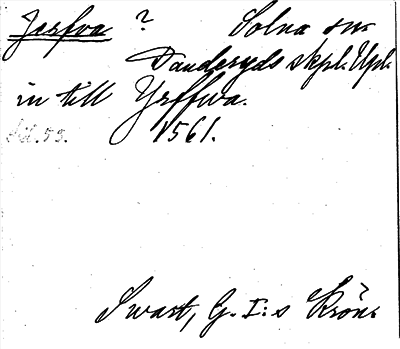 Jerfva ? Solna sn.
Danderyds skpl. Upl.
in till Yrffwa.
Sid. 53. 1561.
Swart, G. I:s Krön.